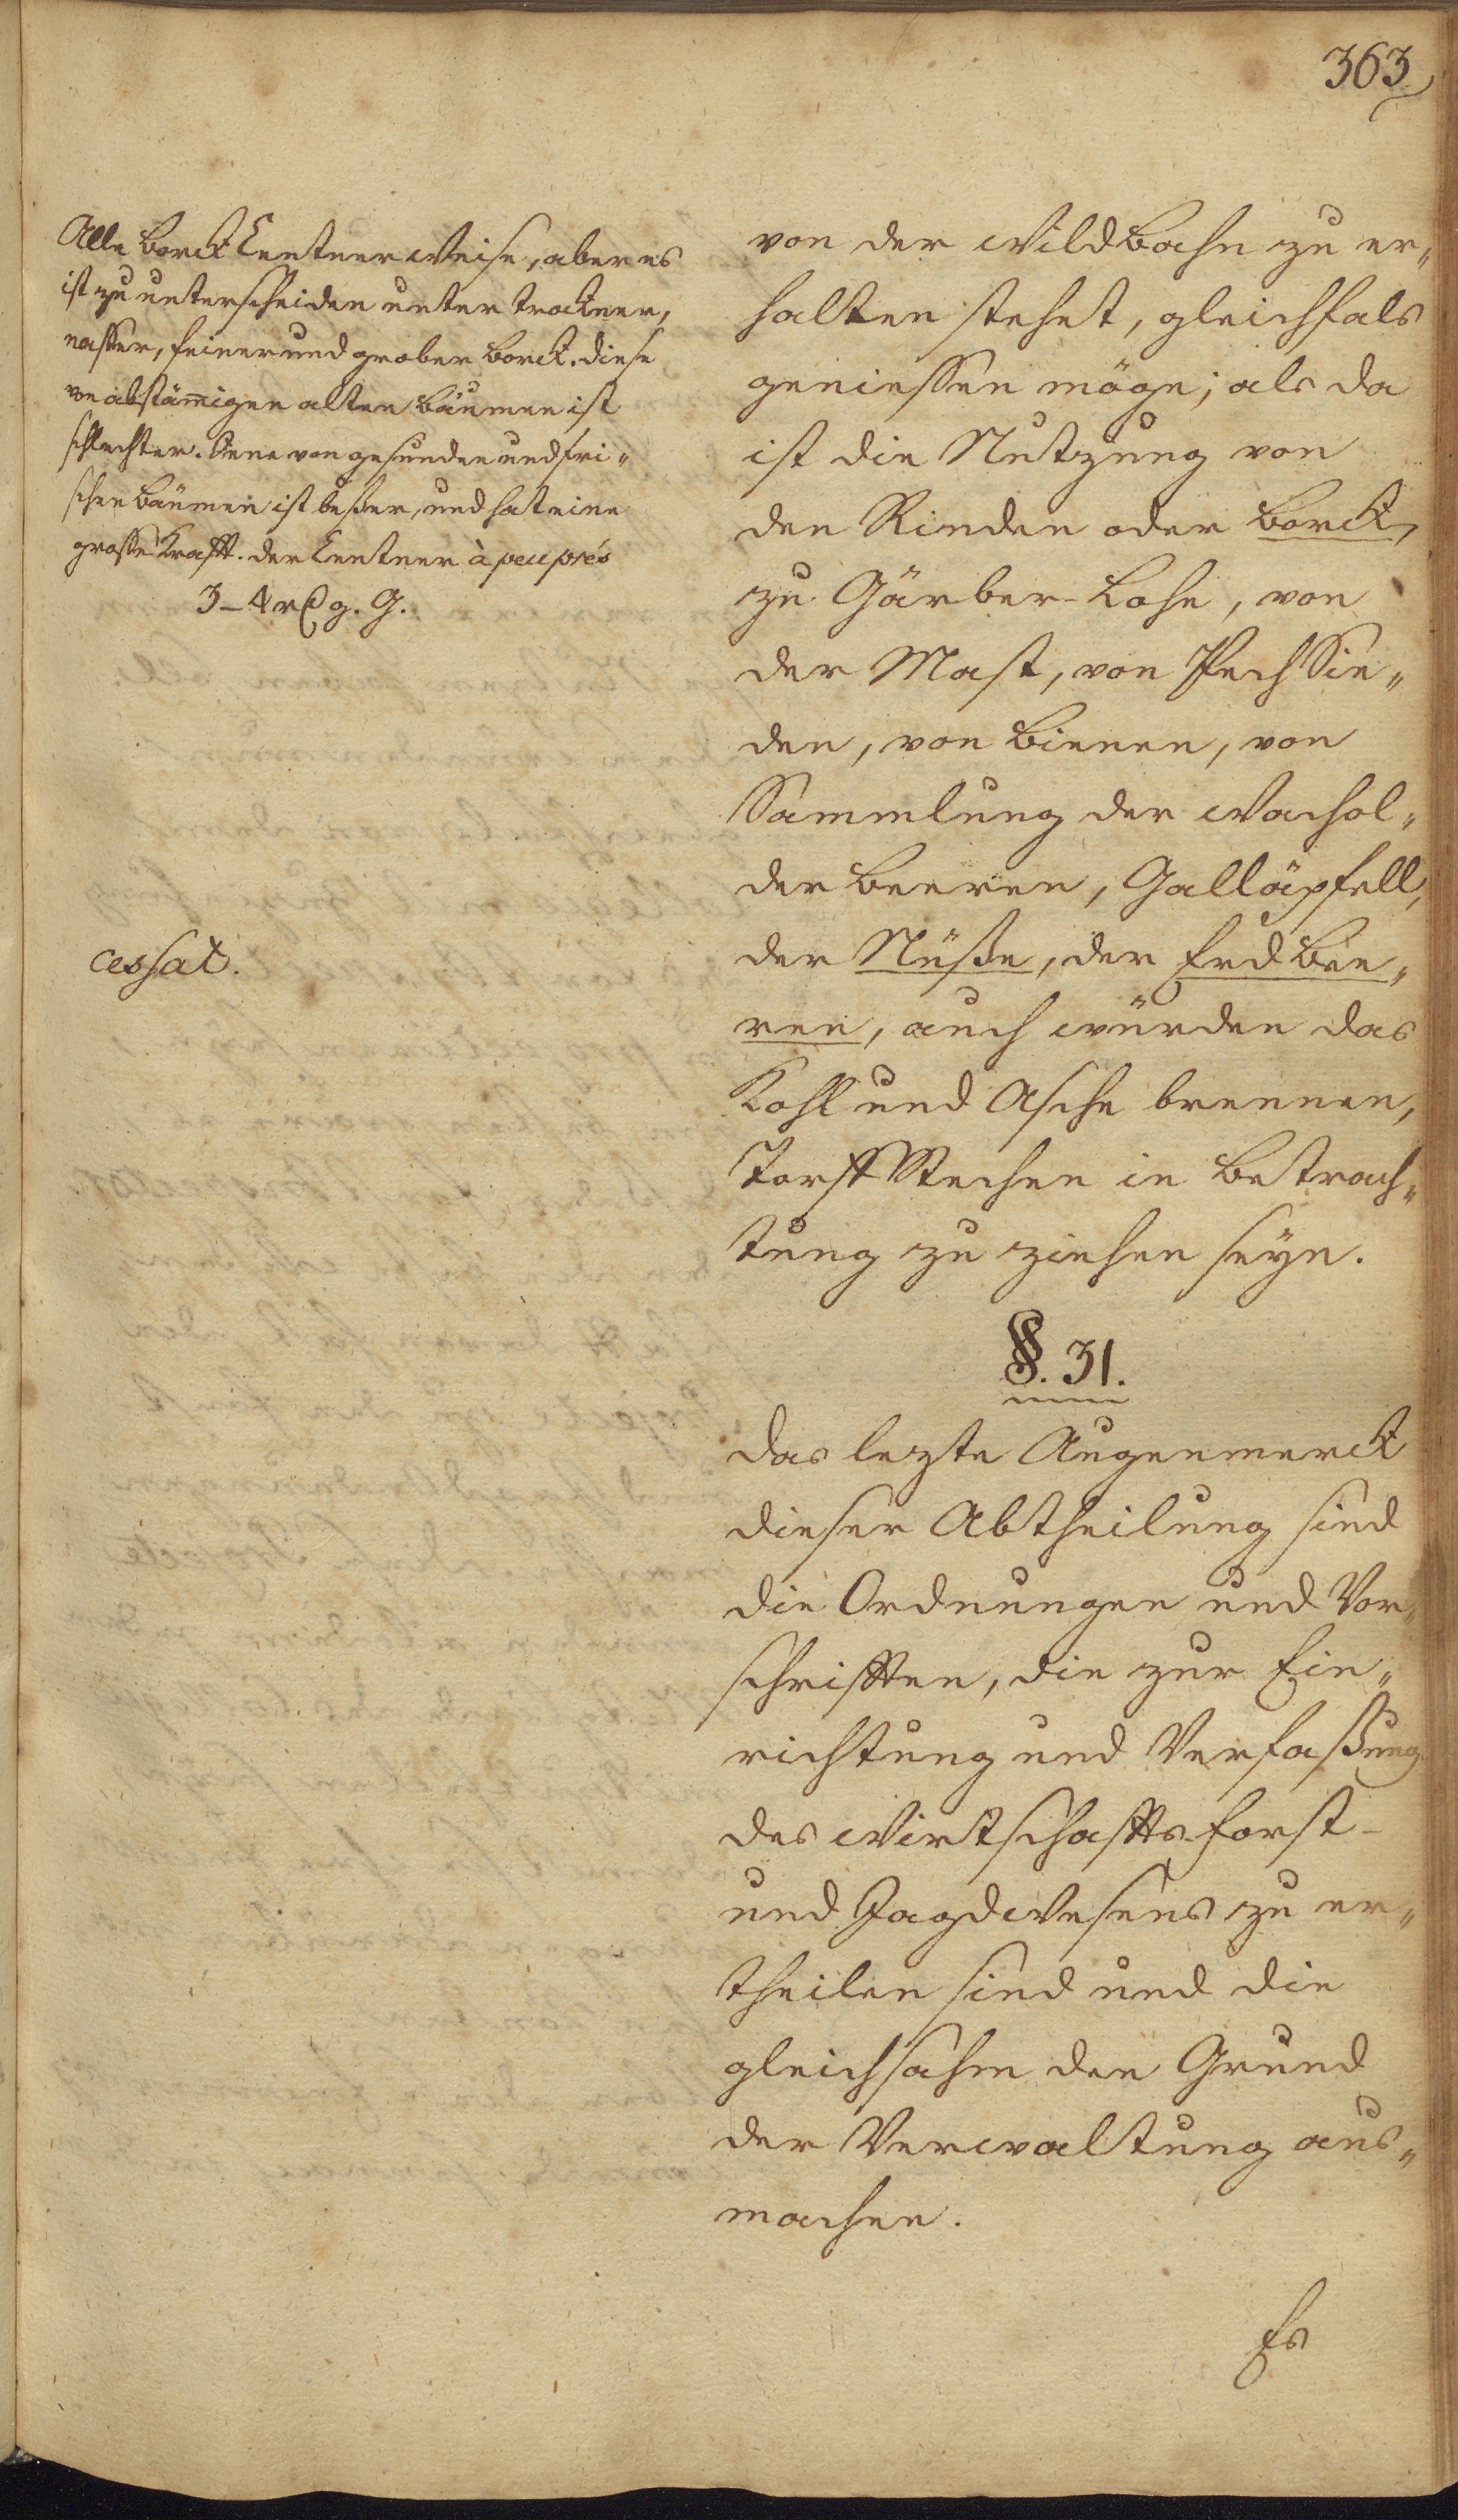 363
Alle borck Centner Weise, aber es
ist zu unterscheiden unter trockner,
nasser, feiner und grober borck. diese
von abstämigen alten bäumen ist
schlechter. Jene von gesunden und fri„
schen bäumen ist beßer, und hat eine
grosse Krafft. der Centner à peu prés
3_4 g. G.
cessat.
von der Wildbahn zu er„
halten stehet, gleichfals
geniessen möge; als da
ist die Nutzung von
den Rinden oder borck,
zu Gärber-Lohe, von
der Mast, von Pech Sie„
den, von bienen, von
Sammlung der Wachol„
der beeren, Galläpfell,
der Nüße, der Erdbee„
ren, auch würden das
Kohl und Asche brennen,
Torff Stechen in betrach„
tung zu ziehen seyn.
§. 31.
das lezte Augenmerck
dieser Abtheilung sind
die Ordnungen und Vor„
schrifften, die zur Ein„
richtung und Verfaßung
des Wirtschaffts-forst-
und Jagdwesens zu er„
theilen sind und die
gleichsahm den Grund
der Verwaltung aus„
machen.
Es